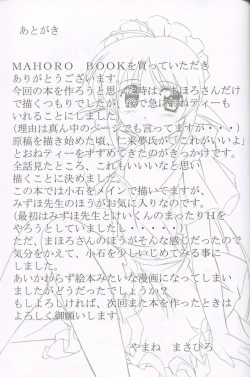 あとがき
ＭＡＨＯＲＯ　ＢＯＯＫを買っていただき
ありがとうございます。
今回の本を作ろうと思った時は、まほろさんだけ
で描くつもりでしたが、後で急におねティーも
いれることにしました。
(理由は真ん中のページでも言ってますが・・・)
原稿を描き始めた頃、仁菜夢氏が「これがいいよ」
とおねティーをすすめてきたのがきっかけです。
全話見たところ、これもいいなと思い
描くことに決めました。
この本では小石をメインで描いてますが、
みずほ先生のほうがお気に入りなのです。
(最初はみずほ先生とけいくんのまったりＨを
やろうとしていましたし・・・・・)
ただ、まほろさんのほうがそんな感じだったので
気分をかえて、小石を少しいじめてみる事に
しました。
あいかわらず絵本みたいな漫画になってしまい
ましたがどうだったでしょうか？
もしよろしければ、次回また本を作ったときは
よろしく御願いします。
やまね　まさひろ